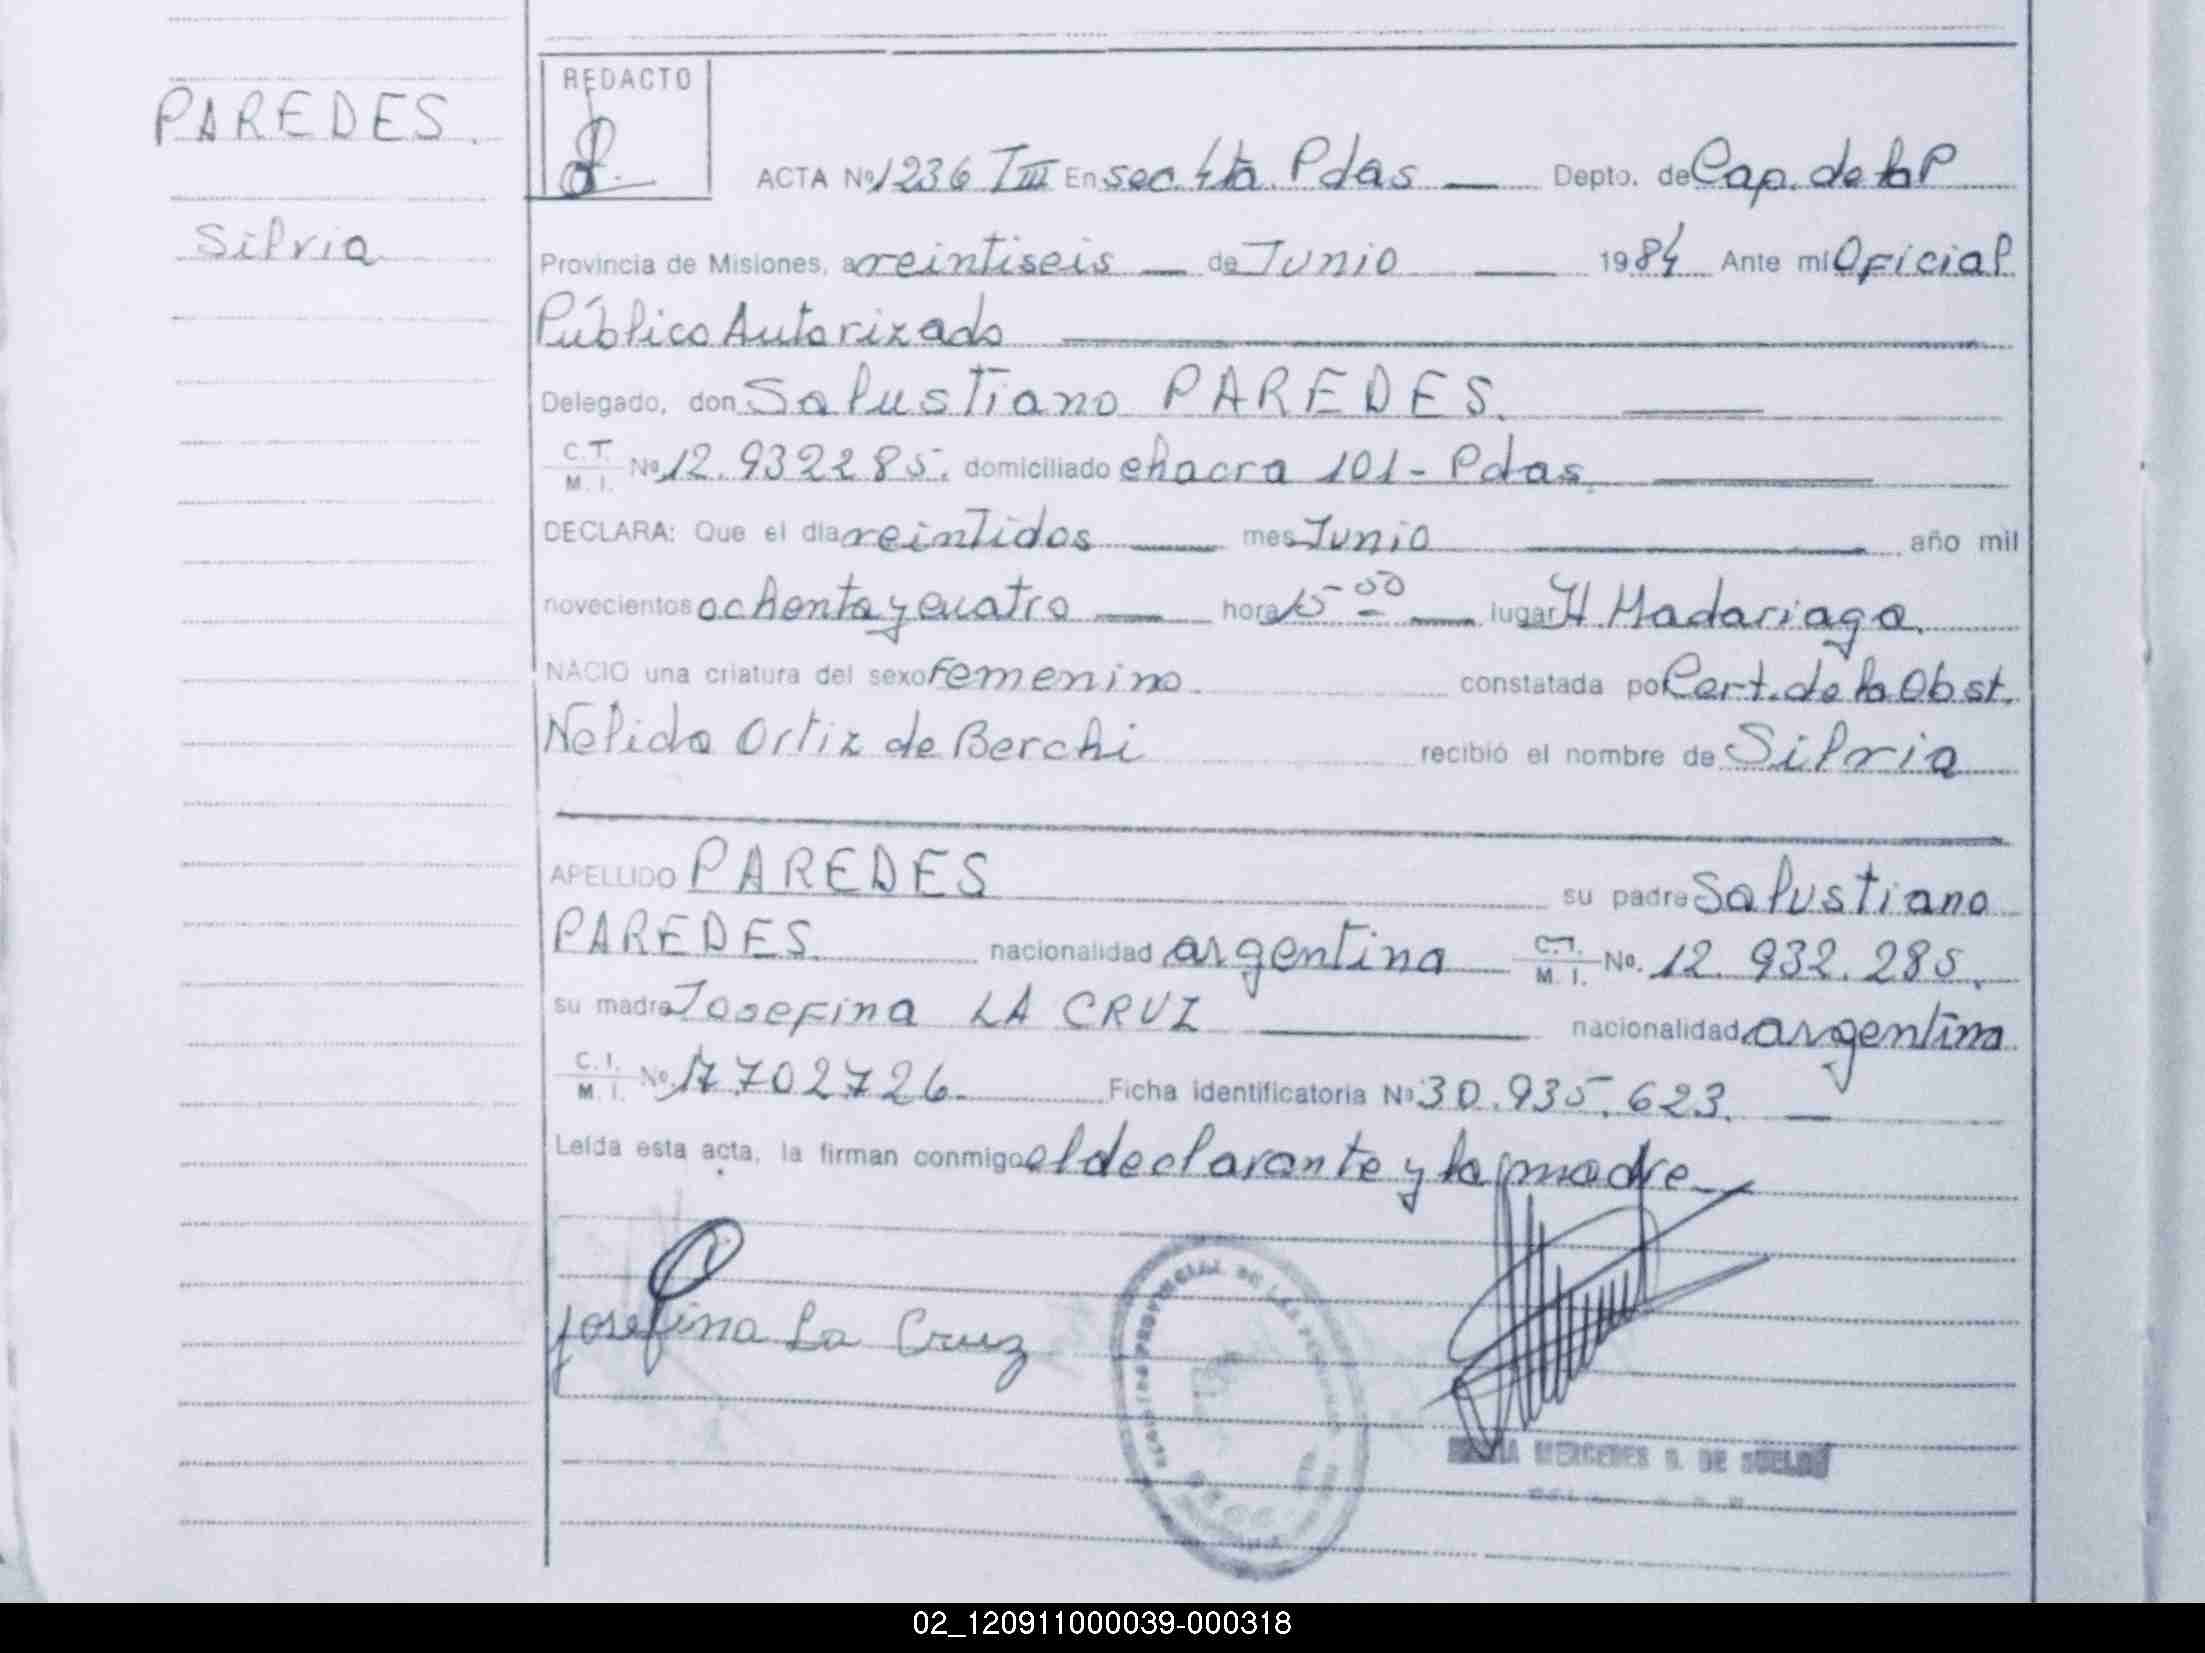 REDACTO
PAREDES.
Silvia
ACTA Nº 1236 TIII En sec. 4ta. Pdas Depto. de Cap. de la P
Provincia de Misiones, a veintiseis de Junio 1984 Ante mi Oficial
Público Autorizado
Delegado, don Salustiano PAREDES.
C.T. M.I. Nº 12.932285. domiciliado chacra 101 - Pdas.
DECLARA: Que el día veintidos mes Junio año mil
novecientos ochenta y cuatro hora 15-50 lugar H. Madariaga.
NACIO una criatura del sexo femenino. constatada por Cert. de la Obst.
Nelida Ortiz de Berchi recibió el nombre de Silvia
APELLIDO PAREDES su padre Salustiano
PAREDES. nacionalidad argentina C.I. M.I. No. 12.932.285.
su madre Josefina LA CRUZ nacionalidad argentina
C.I. M.I. Nº. 17702726. Ficha identificatoria Nº 30.935.623.
Leída esta acta, la firman conmigo el declarante y la madre
Josefina La Cruz
MERCEDES G. DE
02_120911000039-000318